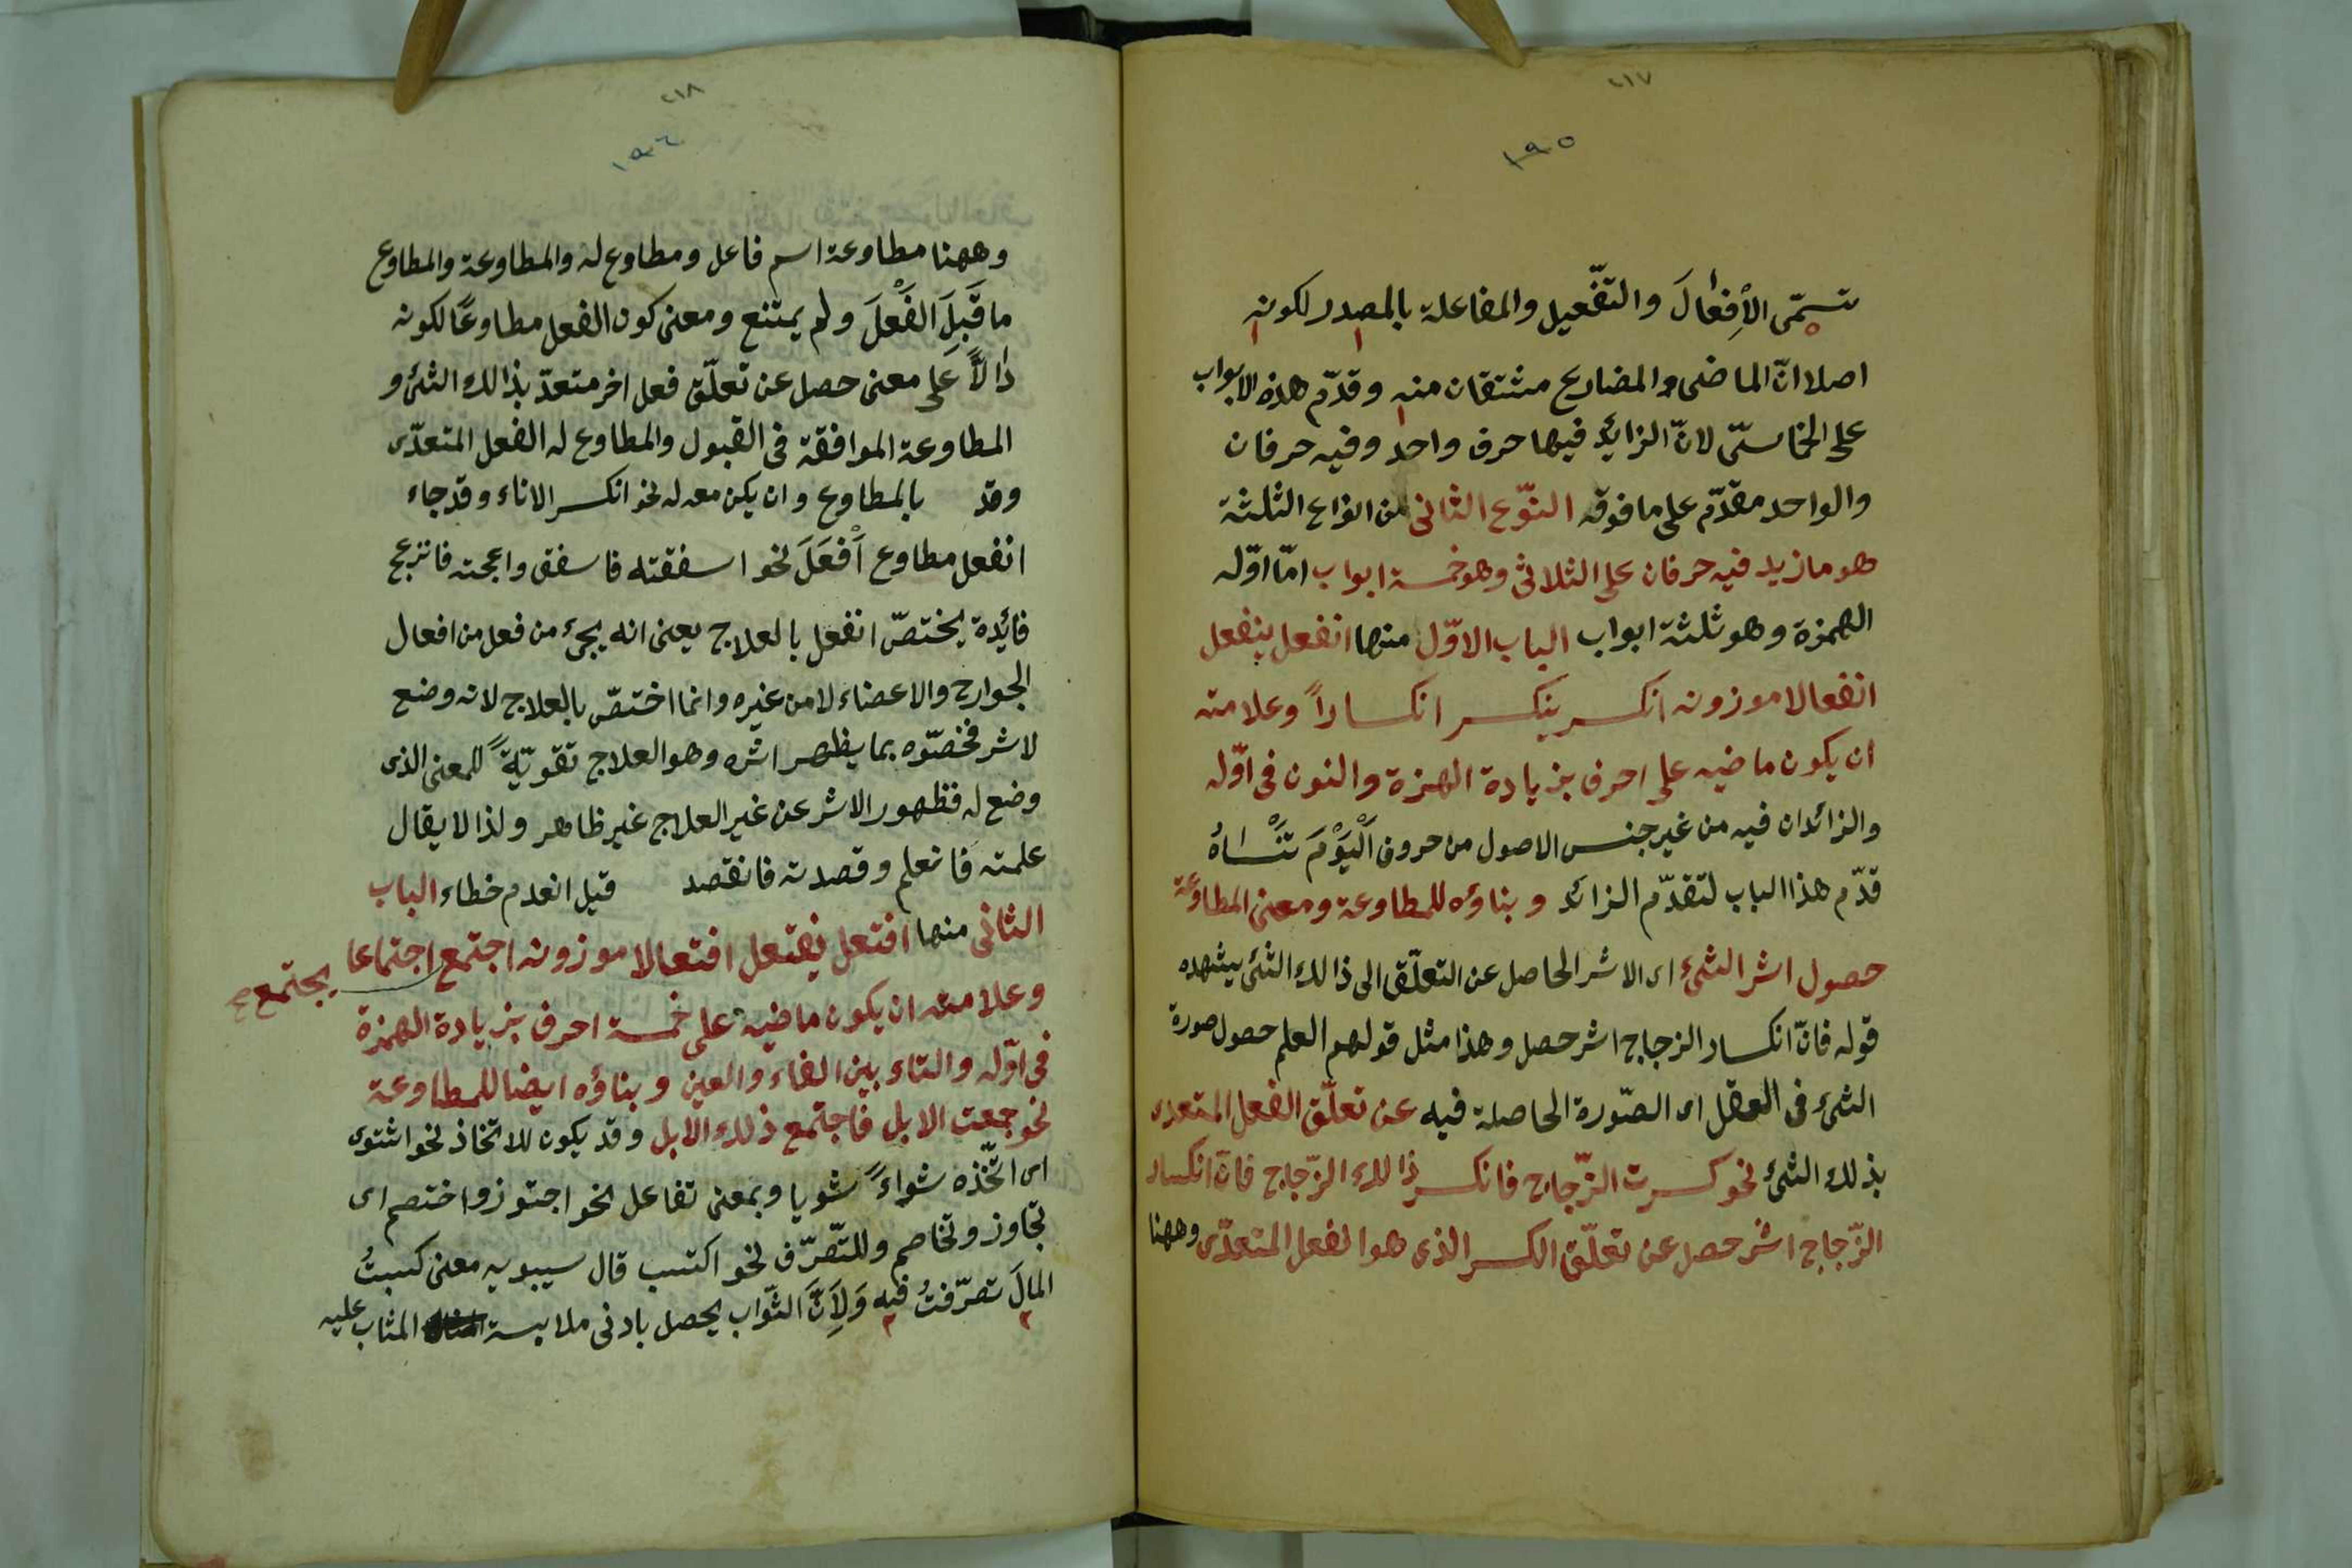 ٢١٧
١٩٥
تسمّى الأِفعٰالَ والتّفعيل والمفاعلة بالمصدر لكونه
اصلا انّ الماضى والمضارع مشتقان منه وقدّم هذه الابواب
على الخماسىّ لانّ الزائد فيها حرف واحد وفيه حرفان
والواحد مقدّم على ما فوقه النّوع الثانى من انواع الثلثة
هو ما زيد فيه حرفان على الثلاثى وهو خمسة ابواب امّا اوّله
الهمزة وهو ثلثة ابواب الباب الاوّل منها انفعل ينفعل
انفعالا موزونه انكسر ينكسر انكساراً وعلامته
ان يكون ماضيه على احرف بزيادة الهمزة والنون فى اوّله
والزائدان فيه من غير جنس الاصول من حروف اَلْيَوْمَ تَنْسٰاهُ
قدّم هذا الباب لتقدّم الزائد وبناؤه للمطاوعة ومعنى المطاوعة
حصول اثر الشئ اى الاثر الحاصل عن التعلّق الى ذالك الشئ يشهده
قوله فانّ انكسار الزجاج اثر حصل وهذا مثل قولهم العلم حصول صورة
الشئ فى العقل اى الصّورة الحاصلة فيه عن تعلّق الفعل المتعدى
بذلك الشئ نحو كسرت الزّجاج فانكسر ذالك الزّجاج فانّ انكسار
الزّجاج اثر حصل عن تعلّق الكسر الذى هو الفعل المتعدّى وههنا
٢١٨
١٩٦
وههنا مطاوعة اسم فاعل ومطاوع له والمطاوعة والمطاوع
ما قَبِلَ الفَعْلَ ولم يمتنع ومعنى كون الفعل مطاوعًا لكونه
دٰالاًّ عَلى معنى حصل عن تعلّق فعل اخر متعدّ بذالك الشئ و
المطاوعة الموافقة فى القبول والمطاوع له الفعل المتعدّى
وقد بالمطاوع وان يكن معه له نحو انكسر الاناء وقد جاء
انفعل مطاوع اَفْعَلَ نحو اسفقته فاسفق وازعجته فانزعج
فائدة يختصّ انفعل بالعلاج يعنى انه يجئ من فعل من افعال
الجوارح والاعضاء لا من غيره وانما اختصّ بالعلاج لانه وضع
لاثر فخصّوه بما يظهر اثره وهو العلاج تقويّةً للمعنى الذى
وضع له فظهور الاثر عن غير العلاج غير ظاهر ولذا لا يقال
علمته فانعلم وقصدته فانقصد قيل انعدم خطاء الباب
الثانى منها افتعل يفتعل افتعالا موزونه اجتمع اجتماعا يجتمع صح
وعلامته ان يكون ماضيه على خمسة احرف بزيادة الهمزة
فى اوّله والتاء بين الفاء والعين وبناؤه ايضا للمطاوعة
نحو جمعت الابل فاجتمع ذلك الابل وقد يكون للاتخاذ نحو اشتوى
اى اتّخذه شواءً شويا وبمعنى تفاعل نحو اجتوز واختصم اى
تجاوز وتخاصم وللتّصرّف نحو اكتسب قال سيبويه معنى كسبتُ
المالَ تصرّفتُ فيه وَلِاَنَّ الثّواب يحصل بادنى ملابسة المثاب عليه